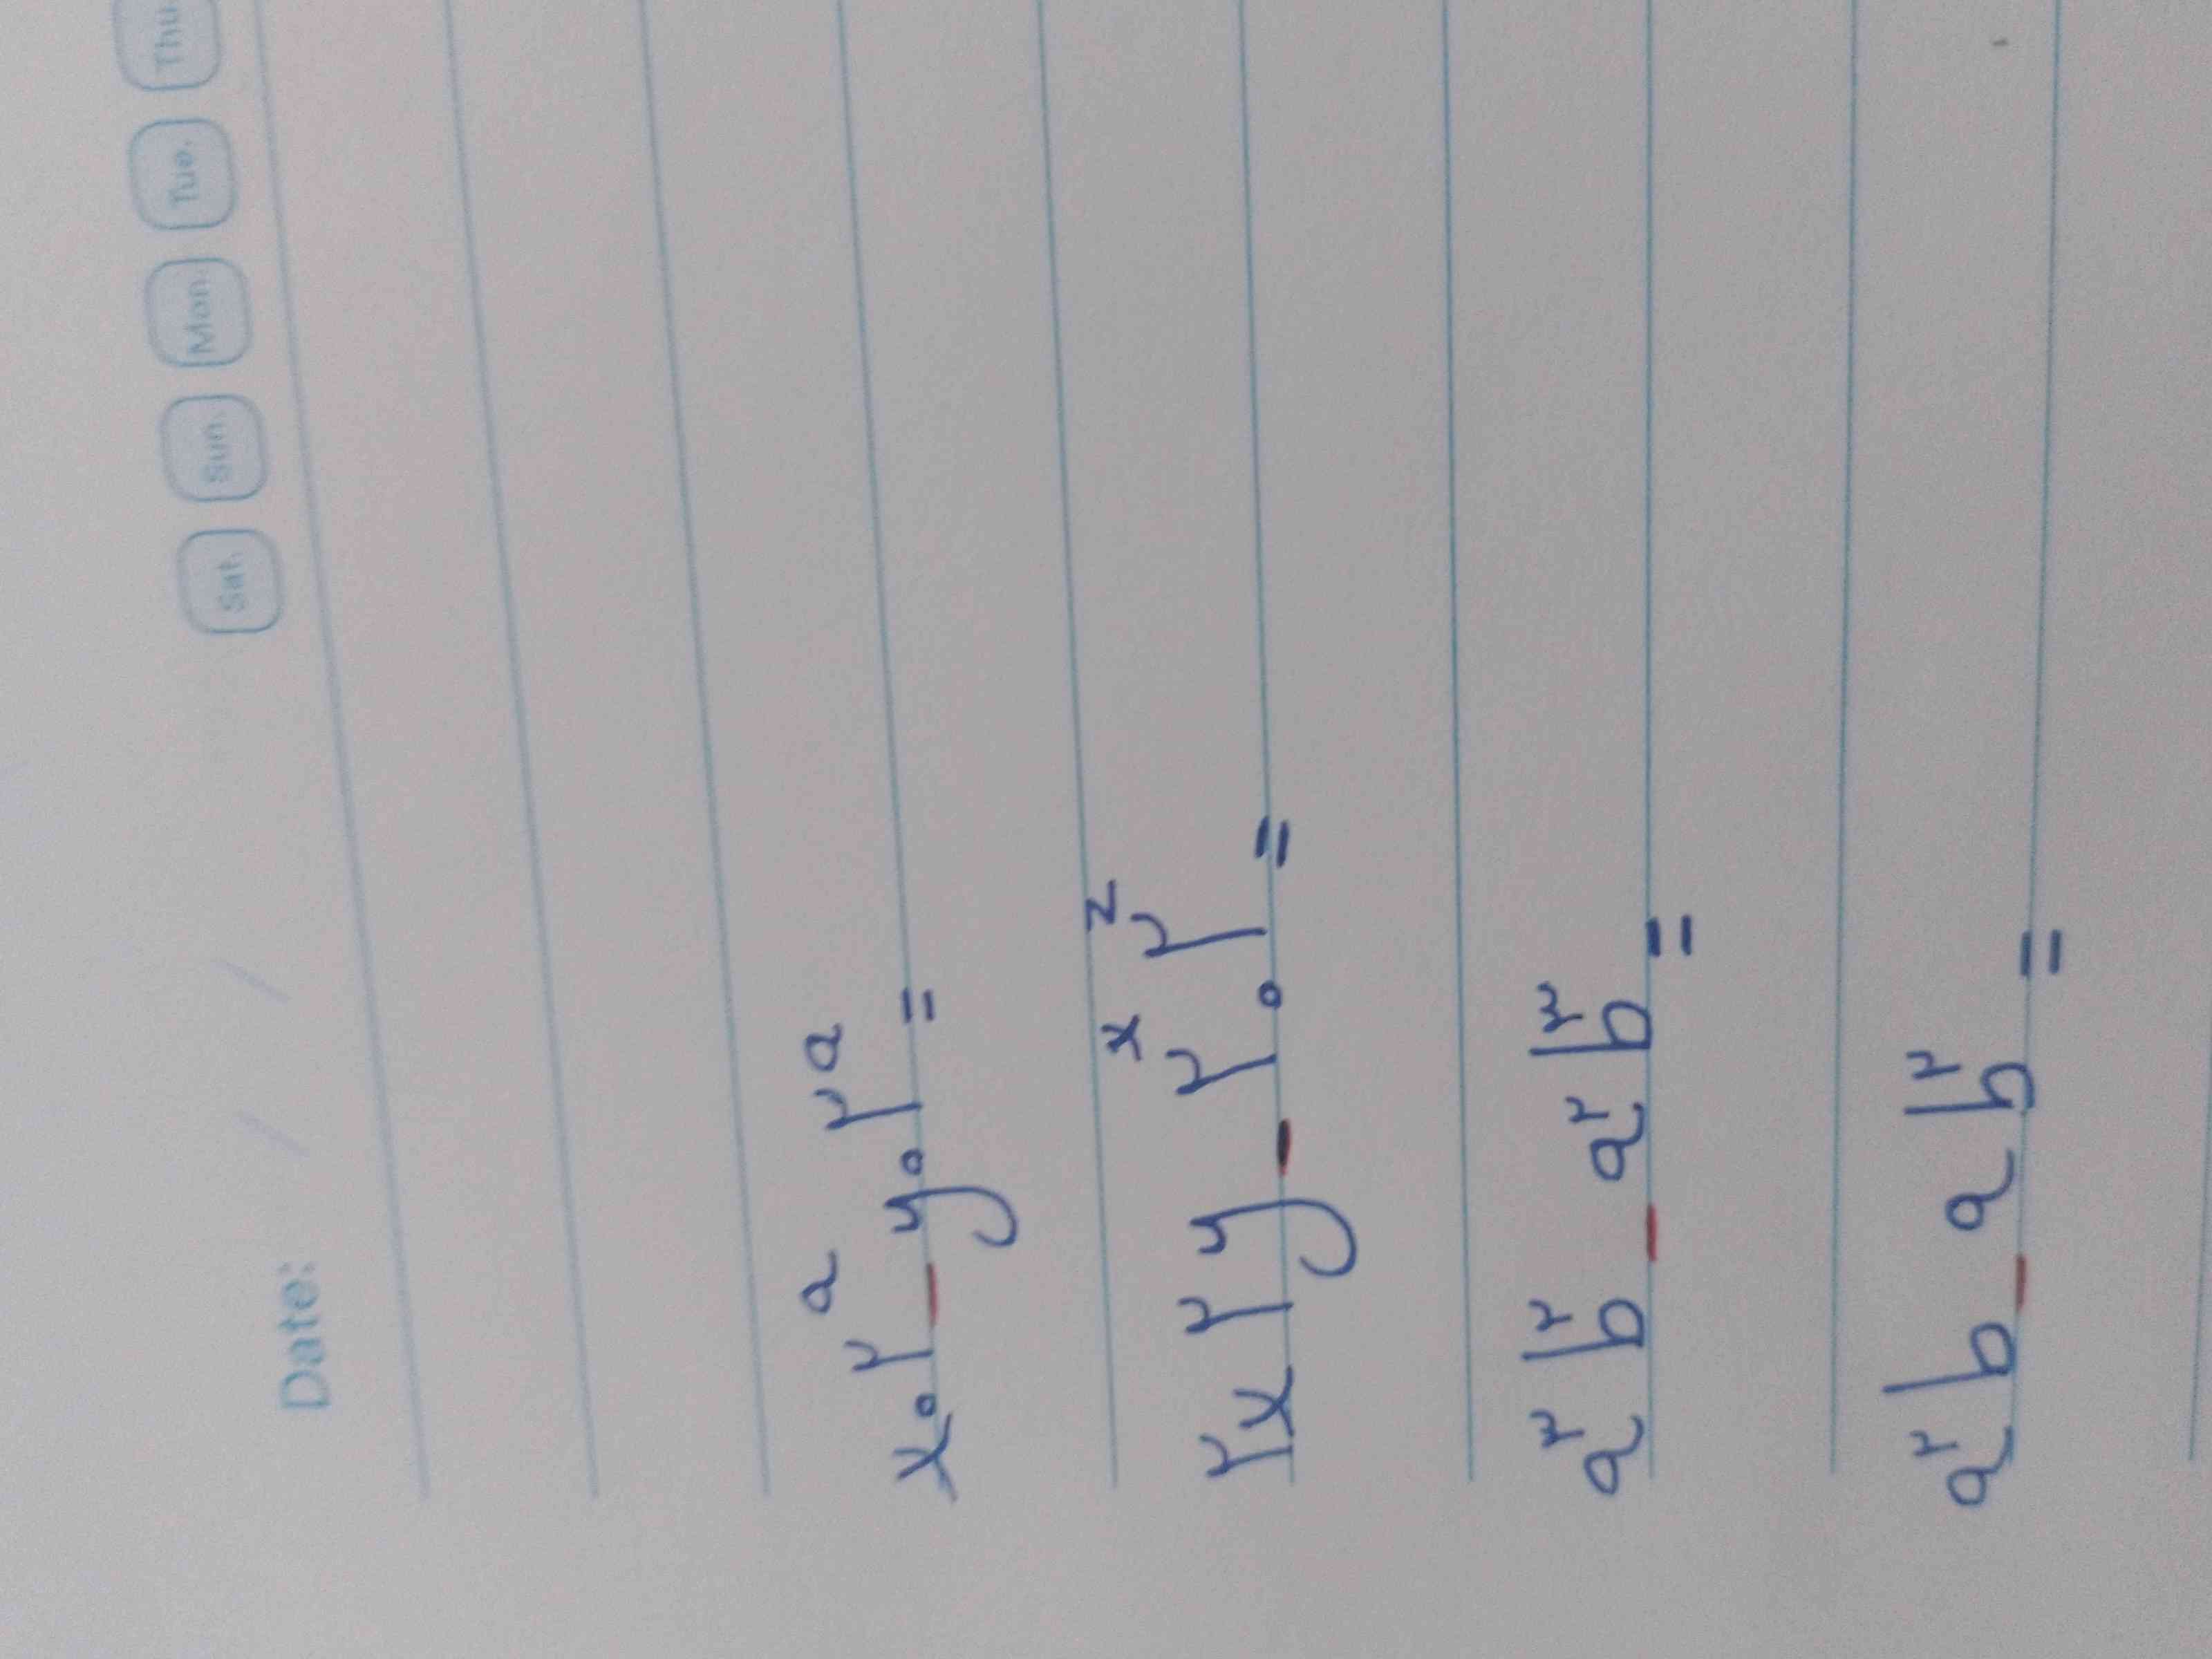 Date: / / Sat. Sun. Mon. Tue. Thu
x∘۲ᵃ − y∘۲ᵃ =
۲x۲y − ۲ˣ∘۲ᶻ =
a^۳ b^۲ − a^۲ b^۳ =
a^۲ b − a b^۲ =